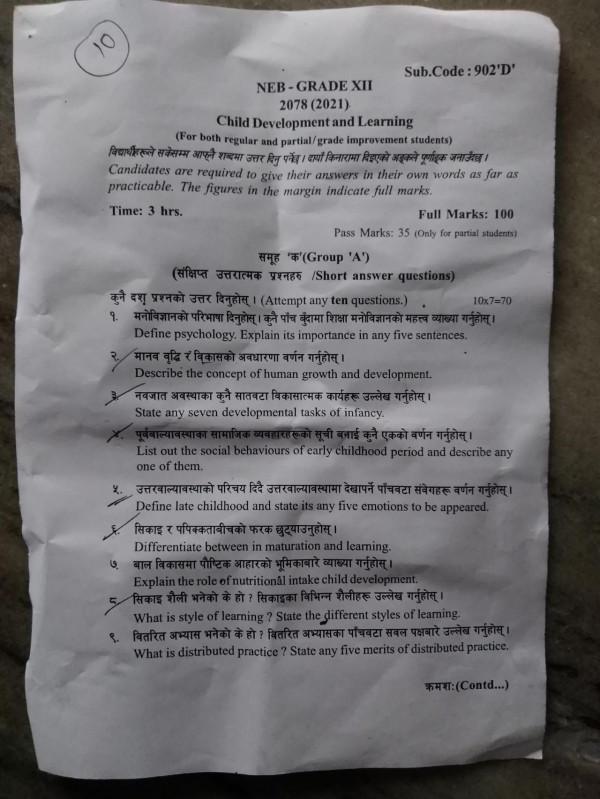 10
Sub.Code : 902'D'
NEB - GRADE XII
2078 (2021)
Child Development and Learning
(For both regular and partial/grade improvement students)
विद्यार्थीहरूले सकेसम्म आफ्नै शब्दमा उत्तर दिनु पर्नेछ। दायाँ किनारामा दिइएको अङ्कले पूर्णाङ्क जनाउँदछ।
Candidates are required to give their answers in their own words as far as
practicable. The figures in the margin indicate full marks.
Time: 3 hrs. Full Marks: 100
Pass Marks: 35 (Only for partial students)
समूह 'क'(Group 'A')
(संक्षिप्त उत्तरात्मक प्रश्नहरु /Short answer questions)
कुनै दश प्रश्नको उत्तर दिनुहोस् । (Attempt any ten questions.) 10x7=70
१. मनोविज्ञानको परिभाषा दिनुहोस् । कुनै पाँच बुँदामा शिक्षा मनोविज्ञानको महत्त्व व्याख्या गर्नुहोस् ।
Define psychology. Explain its importance in any five sentences.
२. मानव वृद्धि र विकासको अवधारणा वर्णन गर्नुहोस् ।
Describe the concept of human growth and development.
३. नवजात अवस्थाका कुनै सातवटा विकासात्मक कार्यहरू उल्लेख गर्नुहोस् ।
State any seven developmental tasks of infancy.
४. पूर्वबाल्यावस्थाका सामाजिक व्यवहारहरूको सूची बनाई कुनै एकको वर्णन गर्नुहोस् ।
List out the social behaviours of early childhood period and describe any
one of them.
५. उत्तरबाल्यावस्थाको परिचय दिदै उत्तरबाल्यावस्थामा देखापर्ने पाँचवटा संवेगहरू वर्णन गर्नुहोस् ।
Define late childhood and state its any five emotions to be appeared.
६. सिकाइ र परिपक्कताबीचको फरक छुट्याउनुहोस् ।
Differentiate between in maturation and learning.
७. बाल विकासमा पौष्टिक आहारको भूमिकाबारे व्याख्या गर्नुहोस् ।
Explain the role of nutritional intake child development.
८. सिकाइ शैली भनेको के हो ? सिकाइका विभिन्न शैलीहरू उल्लेख गर्नुहोस् ।
What is style of learning ? State the different styles of learning.
९. वितरित अभ्यास भनेको के हो ? वितरित अभ्यासका पाँचवटा सबल पक्षबारे उल्लेख गर्नुहोस् ।
What is distributed practice ? State any five merits of distributed practice.
क्रमशः(Contd...)